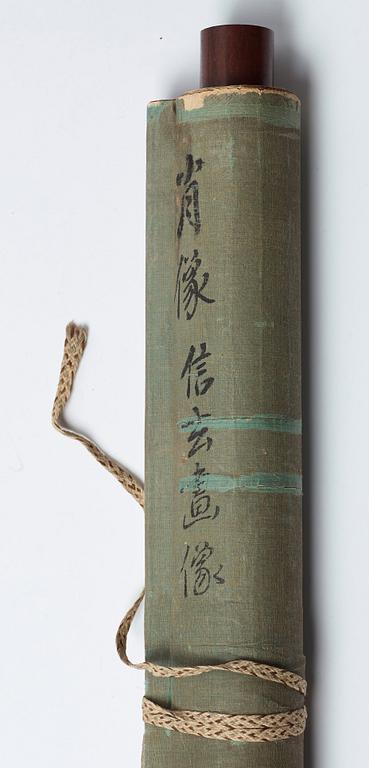 肖像信玄畫像